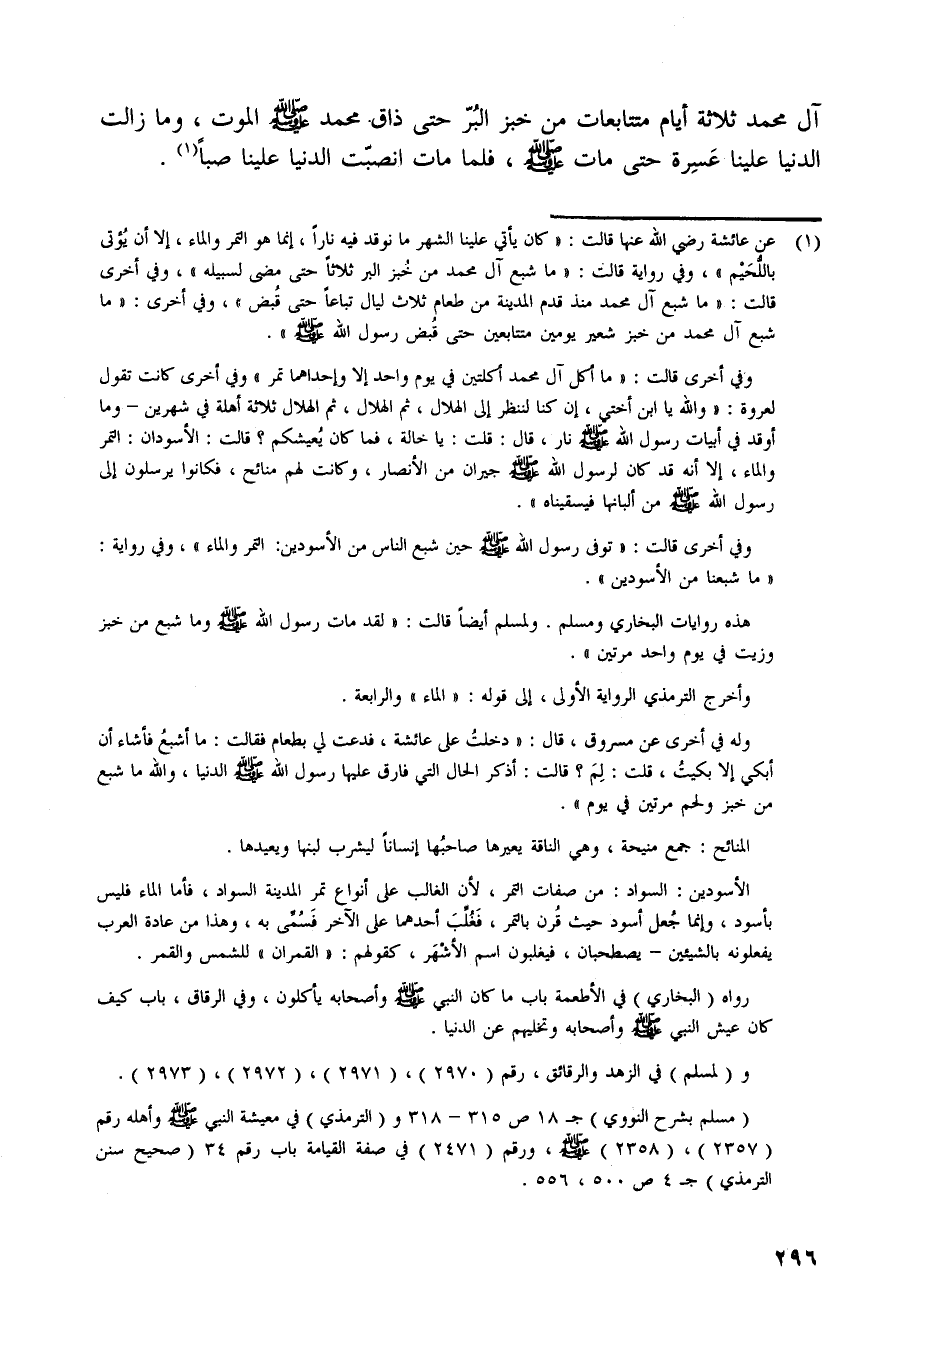 آل محمد ثلاثة أيام متتابعات من خبز البُرّ حتى ذاق محمد ﷺ الموت ، وما زالت
الدنيا علينا عَسِرة حتى مات ﷺ ، فلما مات انصبّت الدنيا علينا صباً(١) .
(١) عن عائشة رضي الله عنها قالت : « كان يأتي علينا الشهر ما نوقد فيه ناراً ، إنما هو التمر والماء ، إلا أن يُؤتى
باللُّحَيْم » ، وفي رواية قالت : « ما شبع آل محمد من خُبز البر ثلاثاً حتى مضى لسبيله » ، وفي أخرى
قالت : « ما شبع آل محمد منذ قدم المدينة من طعام ثلاث ليال تباعاً حتى قُبض » ، وفي أخرى : « ما
شبع آل محمد من خبز شعير يومين متتابعين حتى قُبض رسول الله ﷺ » .
وفي أخرى قالت : « ما أكل آل محمد أكلتين في يوم واحد إلا وإحداهما تمر » وفي أخرى كانت تقول
لعروة : « والله يا ابن أختي ، إن كنا لننظر إلى الهلال ، ثم الهلال ، ثم الهلال ثلاثة أهلة في شهرين – وما
أوقد في أبيات رسول الله ﷺ نار ، قال : قلت : يا خالة ، فما كان يُعيشكم ؟ قالت : الأسودان : التمر
والماء ، إلا أنه قد كان لرسول الله ﷺ جيران من الأنصار ، وكانت لهم منائح ، فكانوا يرسلون إلى
رسول الله ﷺ من ألبانها فيسقيناه » .
وفي أخرى قالت : « توفى رسول الله ﷺ حين شبع الناس من الأسودين: التمر والماء » ، وفي رواية :
« ما شبعنا من الأسودين » .
هذه روايات البخاري ومسلم . ولمسلم أيضاً قالت : « لقد مات رسول الله ﷺ وما شبع من خبز
وزيت في يوم واحد مرتين » .
وأخرج الترمذي الرواية الأولى ، إلى قوله : « الماء » والرابعة .
وله في أخرى عن مسروق ، قال : « دخلتُ على عائشة ، فدعت لي بطعام فقالت : ما أشبعُ فأشاء أن
أبكي إلا بكيتُ ، قلت : لِمَ ؟ قالت : أذكر الحال التي فارق عليها رسول الله ﷺ الدنيا ، والله ما شبع
من خبز ولحم مرتين في يوم » .
المنائح : جمع منيحة ، وهي الناقة يعيرها صاحبُها إنساناً ليشرب لبنها ويعيدها .
الأسودين : السواد : من صفات التمر ، لأن الغالب على أنواع تمر المدينة السواد ، فأما الماء فليس
بأسود ، وإنما جُعل أسود حيث قُرن بالتمر ، فَغُلِّبَ أحدهما على الآخر فَسُمّى به ، وهذا من عادة العرب
يفعلونه بالشيئين – يصطحبان ، فيغلبون اسم الأشْهَر ، كقولهم : « القمران » للشمس والقمر .
رواه ( البخاري ) في الأطعمة باب ما كان النبي ﷺ وأصحابه يأكلون ، وفي الرقاق ، باب كيف
كان عيش النبي ﷺ وأصحابه وتخليهم عن الدنيا .
و ( لمسلم ) في الزهد والرقائق ، رقم ( ٢٩٧٠ ) ، ( ٢٩٧١ ) ، ( ٢٩٧٢ ) ، ( ٢٩٧٣ ) .
( مسلم بشرح النووي ) جـ ١٨ ص ٣١٥ – ٣١٨ و ( الترمذي ) في معيشة النبي ﷺ وأهله رقم
( ٢٣٥٧ ) ، ( ٢٣٥٨ ) ﷺ ، ورقم ( ٢٤٧١ ) في صفة القيامة باب رقم ٣٤ ( صحيح سنن
الترمذي ) جـ ٤ ص ٥٠٠ ، ٥٥٦ .
٢٩٦